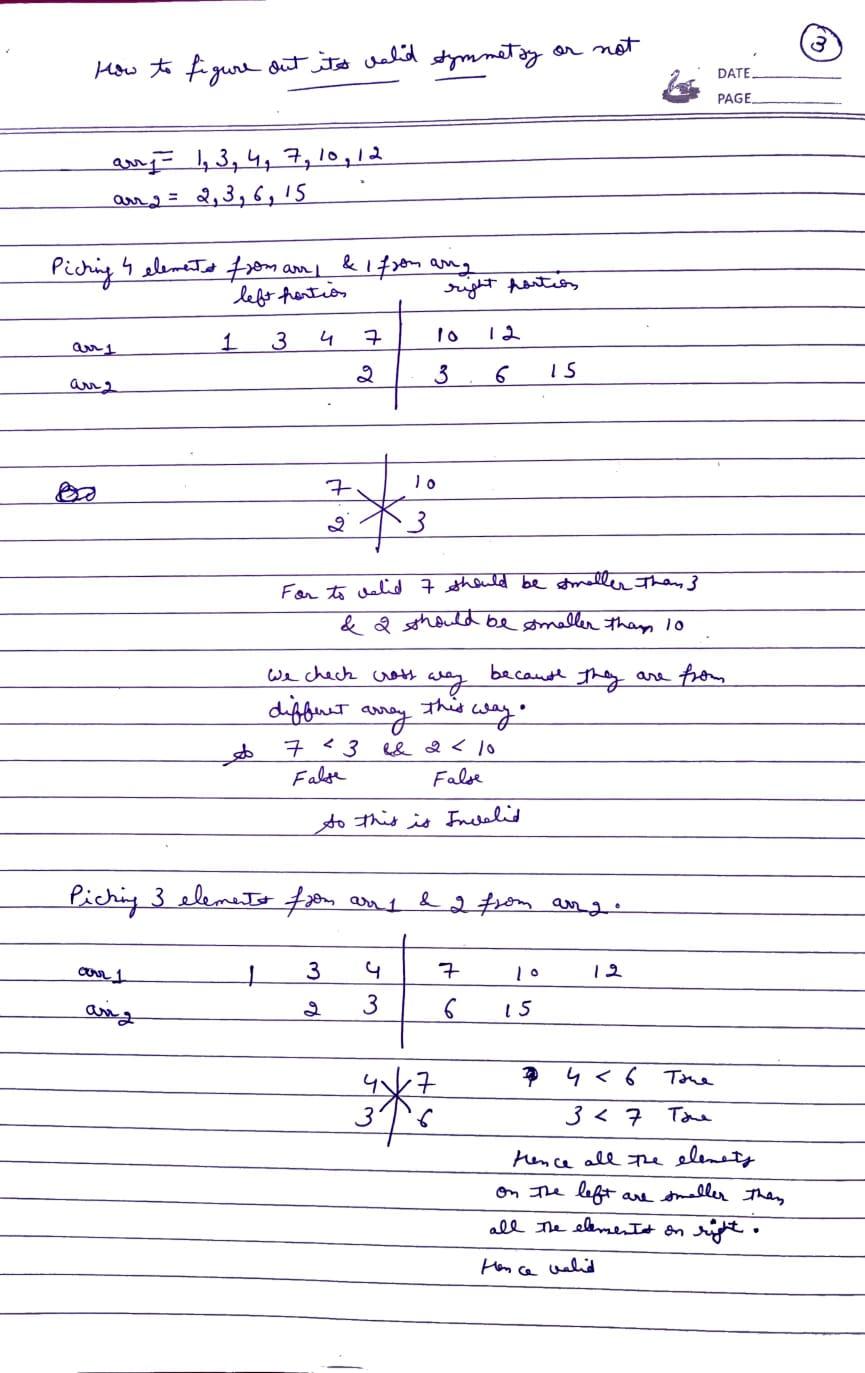 3
How to figure out its valid symmetry or not
DATE
PAGE
arr1 = 1, 3, 4, 7, 10, 12
arr2 = 2, 3, 6, 15
Picking 4 elements from arr1 & 1 from arr2
left portion right portion
arr1 1 3 4 7 10 12
arr2 2 3 6 15
7 10
2 3
For to valid 7 should be smaller than 3
& 2 should be smaller than 10
We check cross way because they are from
differnt array this way.
so 7 < 3 && 2 < 10
False False
so this is Invalid
Picking 3 elements from arr1 & 2 from arr2.
arr1 1 3 4 7 10 12
arr2 2 3 6 15
4 7 4 < 6 True
3 6 3 < 7 True
Hence all the elemets
on the left are smaller than
all the elements on right.
Hence valid